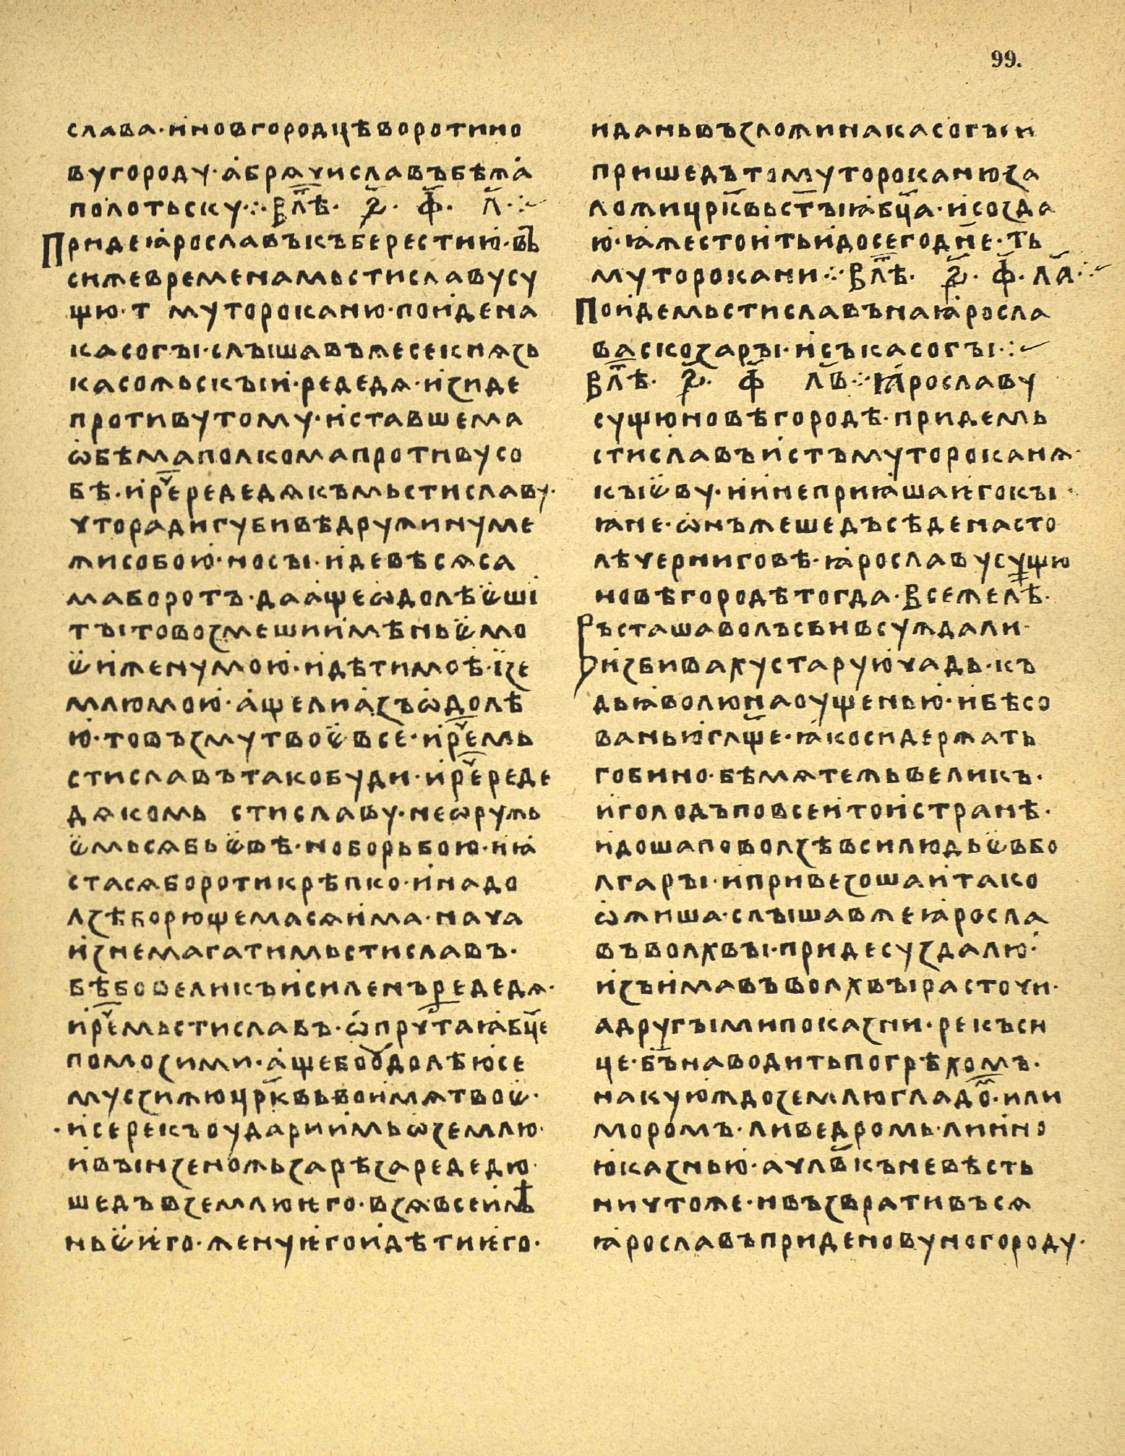 99.
слава · и новгородцѣ воротино
вугороду · а брячиславъ бѣжа
полотьску ·:· в лѣ · ҂ѕ · ф · л ·:·
Приде ꙗрославъ къ берестию · въ
си же времена мьстиславу су
щю · т мутороканю · поиде на
касогы · слышавъ же се кнѧзь
касожьскыи · редедѧ · изиде
противу тому · и ставшема
ѡбѣма полкома противу со
бѣ · и рч҇е редедѧ къ мьстиславу ·
что ради губивѣ дружину ме
жи собою · но сы · идевѣ сѧ са
ма боротъ · да аще ѡдолѣѥши
ты то возмеши имѣньѥ мо
ѥ и жену мою · и дѣти моѣ · і зе
млю мою · аще ли азъ ѡдолѣ
ю · то възму твоѥ все · и рч҇е мь
стиславъ тако буди · и рч҇е реде
дѧ ко мь стиславу · не ѡружь
ѥмь сѧ бьѥвѣ · но борьбою · и ꙗ
ста сѧ бороти крѣпко · и надо
лзѣ борющемасѧ има · нача
изнемагати мьстиславъ ·
бѣ бо великъ и силенъ редедѧ ·
и рч҇е мьстиславъ · ѡ прчтаꙗ бц҃е
помози ми · аще бо ѡдолѣю се
му сзижю црк҃вь во имѧ твоѥ ·
· и се рекъ оудари имь ѡ землю ·
и вынзе ножь зарѣза редедю ·
шедъ в землю ѥго · взѧ все имѣ
ньѥ ѥго · жену ѥго и дѣти ѥго ·
и дань възложи на касогы и
пришедъ томутороканю за
ложи црк҃вь ст҃ыꙗ бц҃а · и созда
ю · ꙗже стоить и до сего дн҃е · тъ
муторокани ·:· в лѣ · ҂ѕ · ф · л҃а ·:·
Поиде мьстиславъ на ꙗросла
ва с козары · и съ касогы ·:·
В лѣ · ҂ѕ · ф л҃в ·:· Ꙗрославу
сущю новѣгородѣ · приде мь
стиславъ ис тъмутороканѧ ·
кыѥву · и и не приꙗша ѥго кы ·
ꙗне · ѡнъ же шедъ сѣде на сто
лѣ черниговѣ · ꙗрославу сущю
новѣгородѣ тогда · В се же лѣ ·
въсташа волъсви в суждали ·
и избиваху старую чадь · къ
дьꙗволю наоущенью · и бѣсо
ванью гл҃ще · ꙗко си держать
гобино · бѣ мѧтежь великъ ·
и голодъ по всеи тои странѣ ·
идоша по волзѣ вси людьѥ в бо
лгары · и привезоша и тако
ѡжиша · слышав же ꙗросла
въ волхвы · приде суздалю ·
изъимавъ волхвы расточи ·
а другыми показни · рекъ си
це · б҃ъ наводить по грѣхомъ ·
на куюждо землю гладо҇м · или
моромъ · ли ведромь · ли ино
ю казнью · а чл҃вкъ не вѣсть
ничтоже · и възвративъсѧ
ꙗрославъ приде новуногороду ·